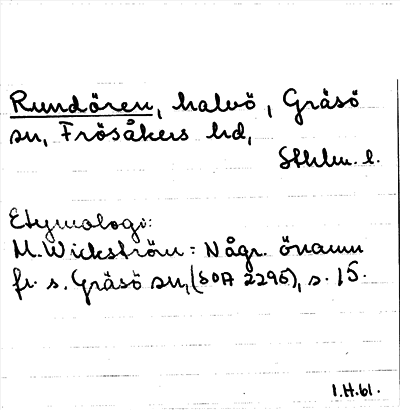 Rundören, halvö, Gräsö
sn, Frösåkers hd,
Sthlm. l.
Etymologi:
M. Wickström: Någr. önamn
fr. s. Gräsö sn, (SOA 2295), s. 15.
1.H.61.